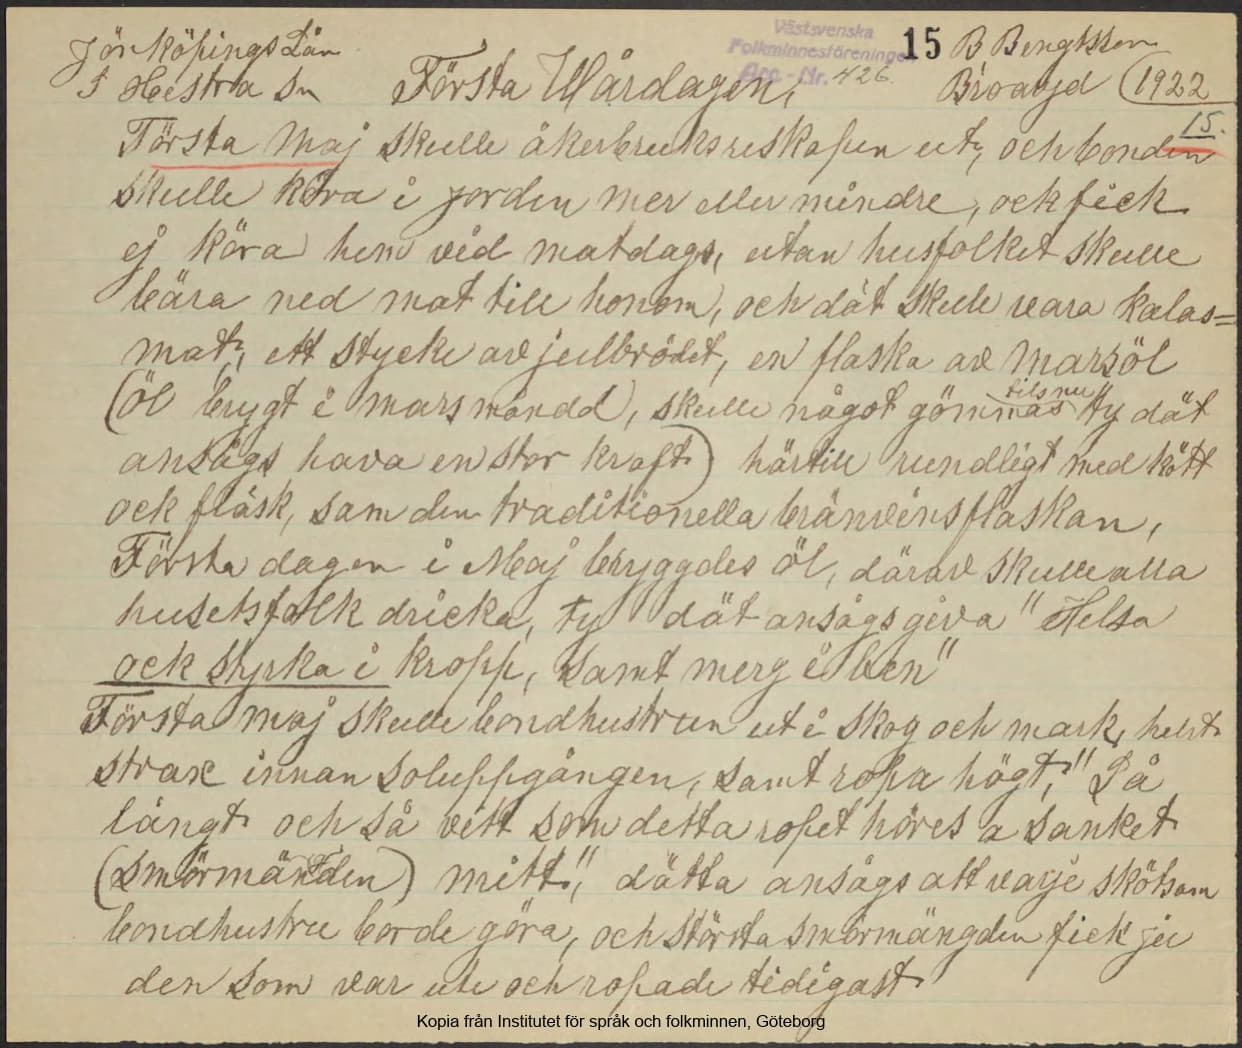 Jönköpings Län
Västsvenska
Folkminnesföreningen
Acc.-Nr. 426.
15
B Bengtsson
S Hestra Sn
Första Wårdagen,
Broaryd (1922
15.
Första Maj skulle åkerbruksreskapen ut, och bonden
skulle köra i jorden mer eller mindre, ock fick
ej köra hem vid matdags, utan husfolket skulle
bära ned mat till honom, och dät skulle vara kalas=
mat, ett stycke av julbrödet, en flaska av marsöl
(öl brygt i mars månad, skulle något gömmas tils nu ty dät
ansågs hava en stor kraft) härtill rundligt med kött
ock fläsk, sam den traditionella bränvinsflaskan,
Första dagen i Maj bryggdes öl, därav skulle alla
husetsfolk dricka, ty dät ansågs giva "Helsa
ock styrka i kropp, samt merg i ben"
Första maj skulle bondhustrun ut i skog och mark, helst
strax innan soluppgången, samt ropa högt, "Så
långt och så vitt som detta ropet höres a sanket
(smörmängden) mitt", dätta ansågs att varje skötsam
bondhustru borde göra, och största smörmängden fick ju
den som var ute och ropade tidigast
Kopia från Institutet för språk och folkminnen, Göteborg